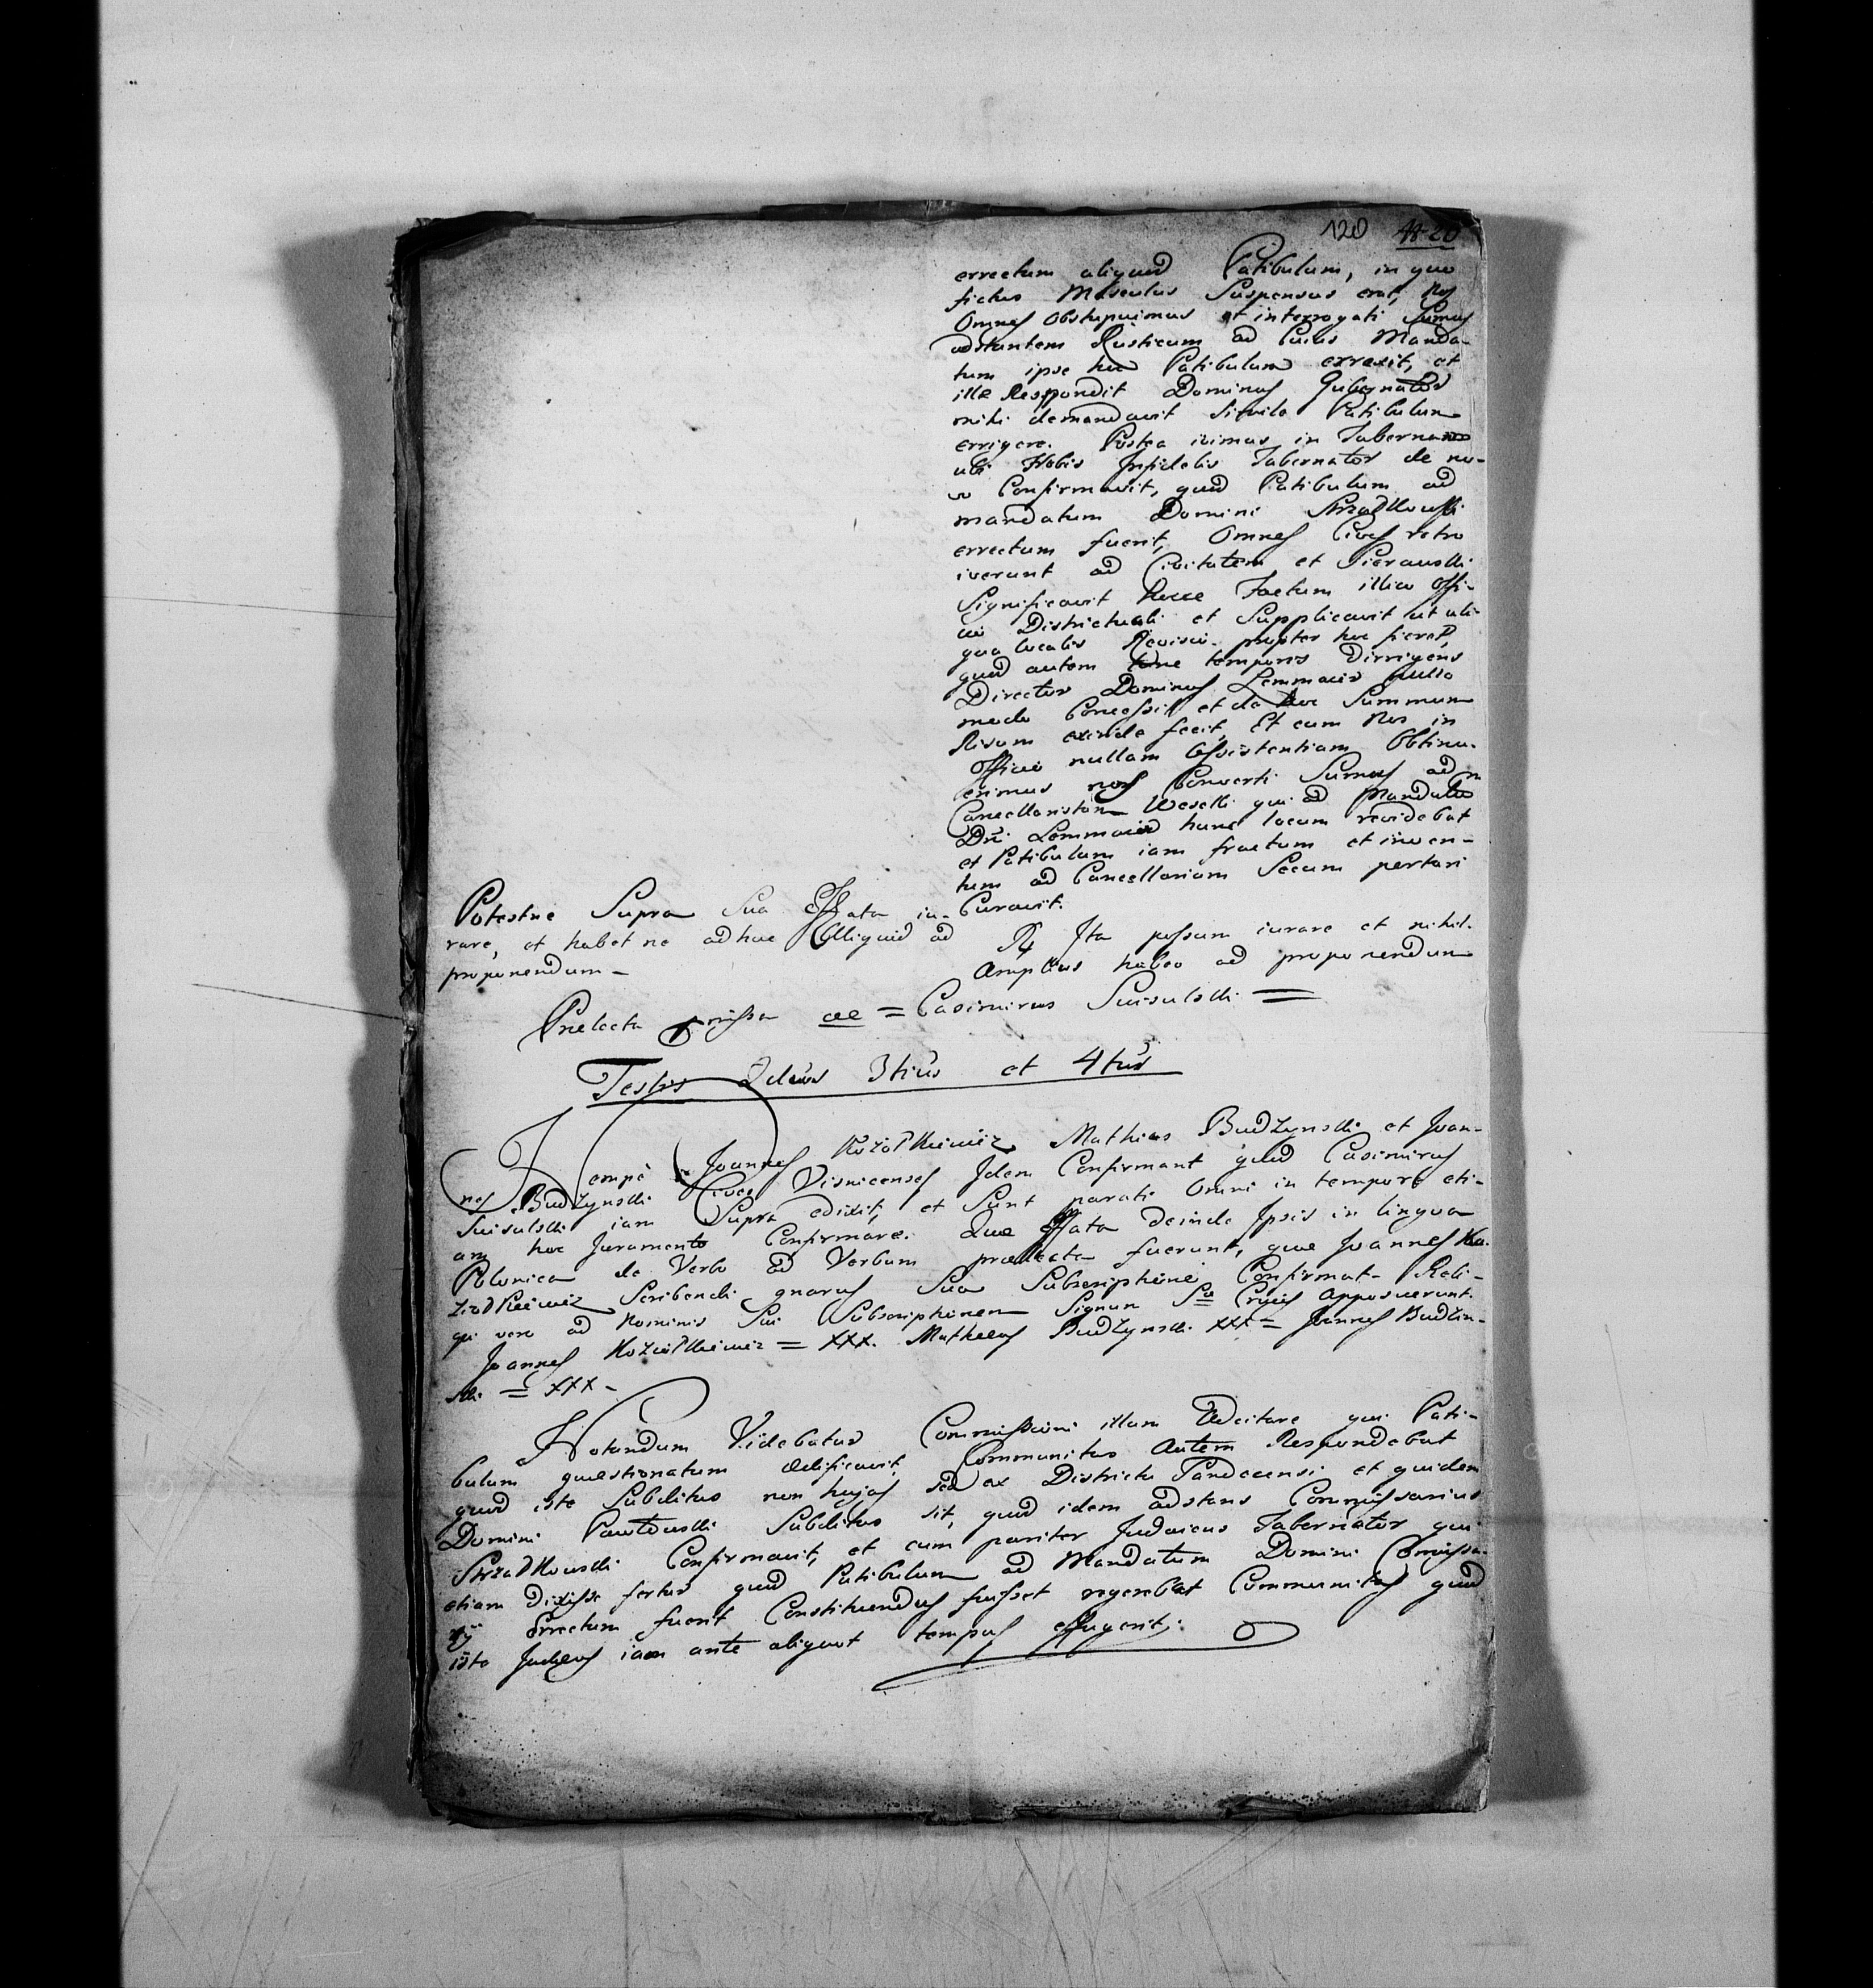 120
errectum aliquod Patibulum, in quo
fictus Masculus Suspensus erat, Nos
Omnes Obstupuimus et interrogati Sumus
adstantem Rusticum ad Cuius Manda-
tum ipse hoc Patibulum erraxit, et
ille Respondit Dominus Gubernator
mihi demandavit Simile Patibulum
errigere. Postea ivimus in Tabernam
ubi Nobis Infidelis Tabernator de no-
vo Confirmavit, quod Patibulum ad
mandatum Domini Strzadkowski
errectum fuerit, Omnes Cives retro
iverunt ad Civitatem et Pierawski
Significavit hocce Factum illico Offi-
cio Districtuali et Supplicavit ut ali-
qua localis Revisio propter hoc fieret,
quod autem tunc temporis Dirrigens
Director Dominus Lemmaier nullo
modo Concessit et de hoc Summum
Risum exinde fecit, Et cum Nos in
Officio nullam Assistentiam Obtinu-
erimus nos Converti Sumus ad
Cancellaristam Weselli qui ad Mandatum
Dni Lemmaier hunc locum revidebat
et Patibulum iam fractum et inven-
tum ad Cancellariam Secum portari
Curavit.
Potestne Supra Sua Effata iu-
rare, et habet ne adhuc Alliquid ad
proponendum –
R Ita possum iurare et nihil
Amplius habeo ad proponendum
Prelecta = Casimirus Suisulski =
Testis 2dus 3tius et 4tus
Nempè Joannes Koziołkiewicz Mathias Budzynski et Joan-
nes Budzynski Cives Visnicenses Idem Confirmant quod Casimirus
Suisulski iam Supra edixit, et Sunt parati Omni in tempore eti-
am hoc Juramento Confirmare. Que Effata deinde Ipsis in lingua
Polonica de Verbo ad Verbum prælecta fuerunt, que Joannes Ko-
ziołkiewicz Scribendi gnarus Sua Subscriptione Confirmat – Reli-
qui vero ad Nominis Sui Subscriptionem Signum Sæ Crucis Apposuerunt.
Joannes Koziołkiewicz = XXX. Matheus Budzynski XXX = Joannes Budzin-
ski = XXX –
Notandum Videbatur Commissioni illum Adcitare qui Pati-
bulum quæstionatum ædificavit, Communitas Autem Respondebat
quod iste Subditus non hujas sed ex Districtu Sandecensi et quidem
Domini Subditus sit, quod idem adstans Commissarius
Strzadkowski Confirmavit, et cum pariter Judaicus Tabernator qui
etiam Dixisse fertur quod Patibulum ad Mandatum Domini Commissa-
rÿ Errectum fuerit Constituendus fuisset regerebat Communitas quod
iste Judæus iam ante aliquot tempus effugerit.